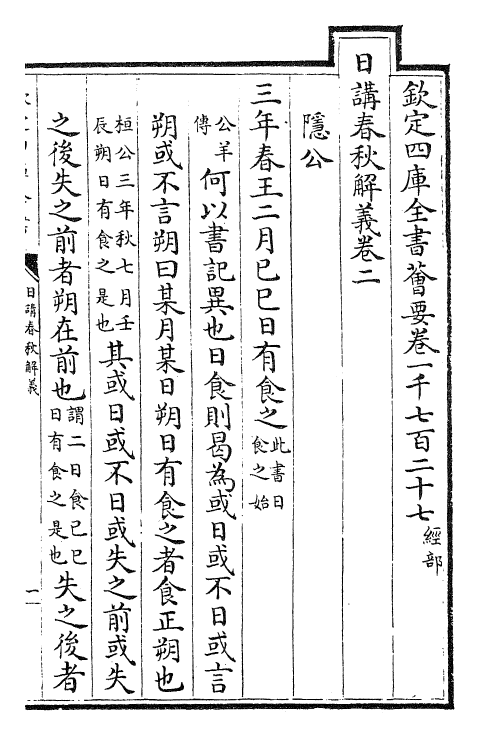 欽定四庫全書薈要卷一千七百二十七經部
日講春秋解義卷二
隱公
三年春王二月己巳日有食之此書日食之始
公羊傳何以書記異也日食則曷為或日或不日或言
朔或不言朔曰某月某日朔日有食之者食正朔也
桓公三年秋七月壬辰朔日有食之是也其或日或不日或失之前或失
之後失之前者朔在前也謂二日食己巳日有食之是也失之後者
日講春秋解義
一